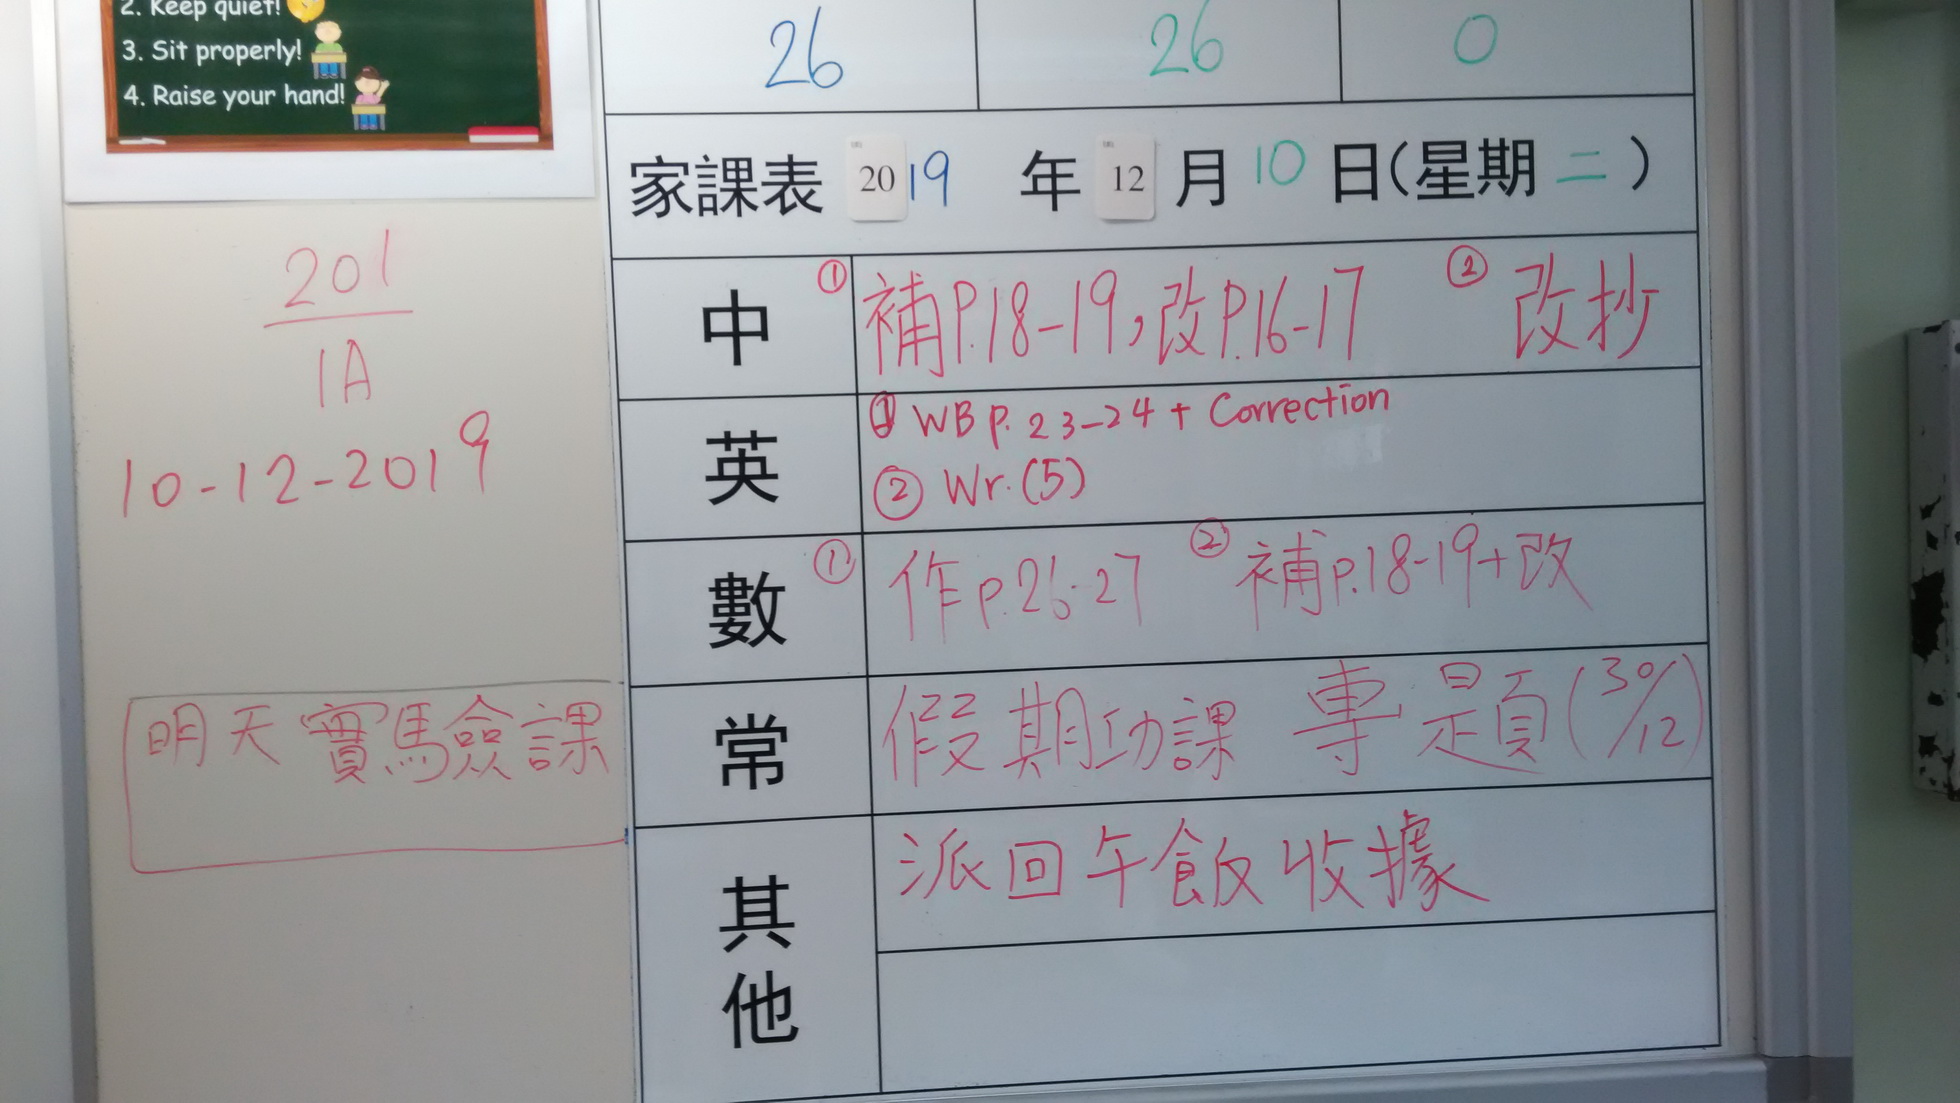 2. Keep quiet!
3. Sit properly!
4. Raise your hand!
26 26 0
家課表 2019 年 12 月 10 日(星期二)
201
1A
10-12-2019
明天實驗課
中 ① 補P.18-19,改P.16-17 ② 改抄
英 ① WB p. 23-24 + Correction
② Wr. (5)
數 ① 作p.26-27 ② 補p.18-19+改
常 假期功課 專題(30/12)
其他 派回午飯收據